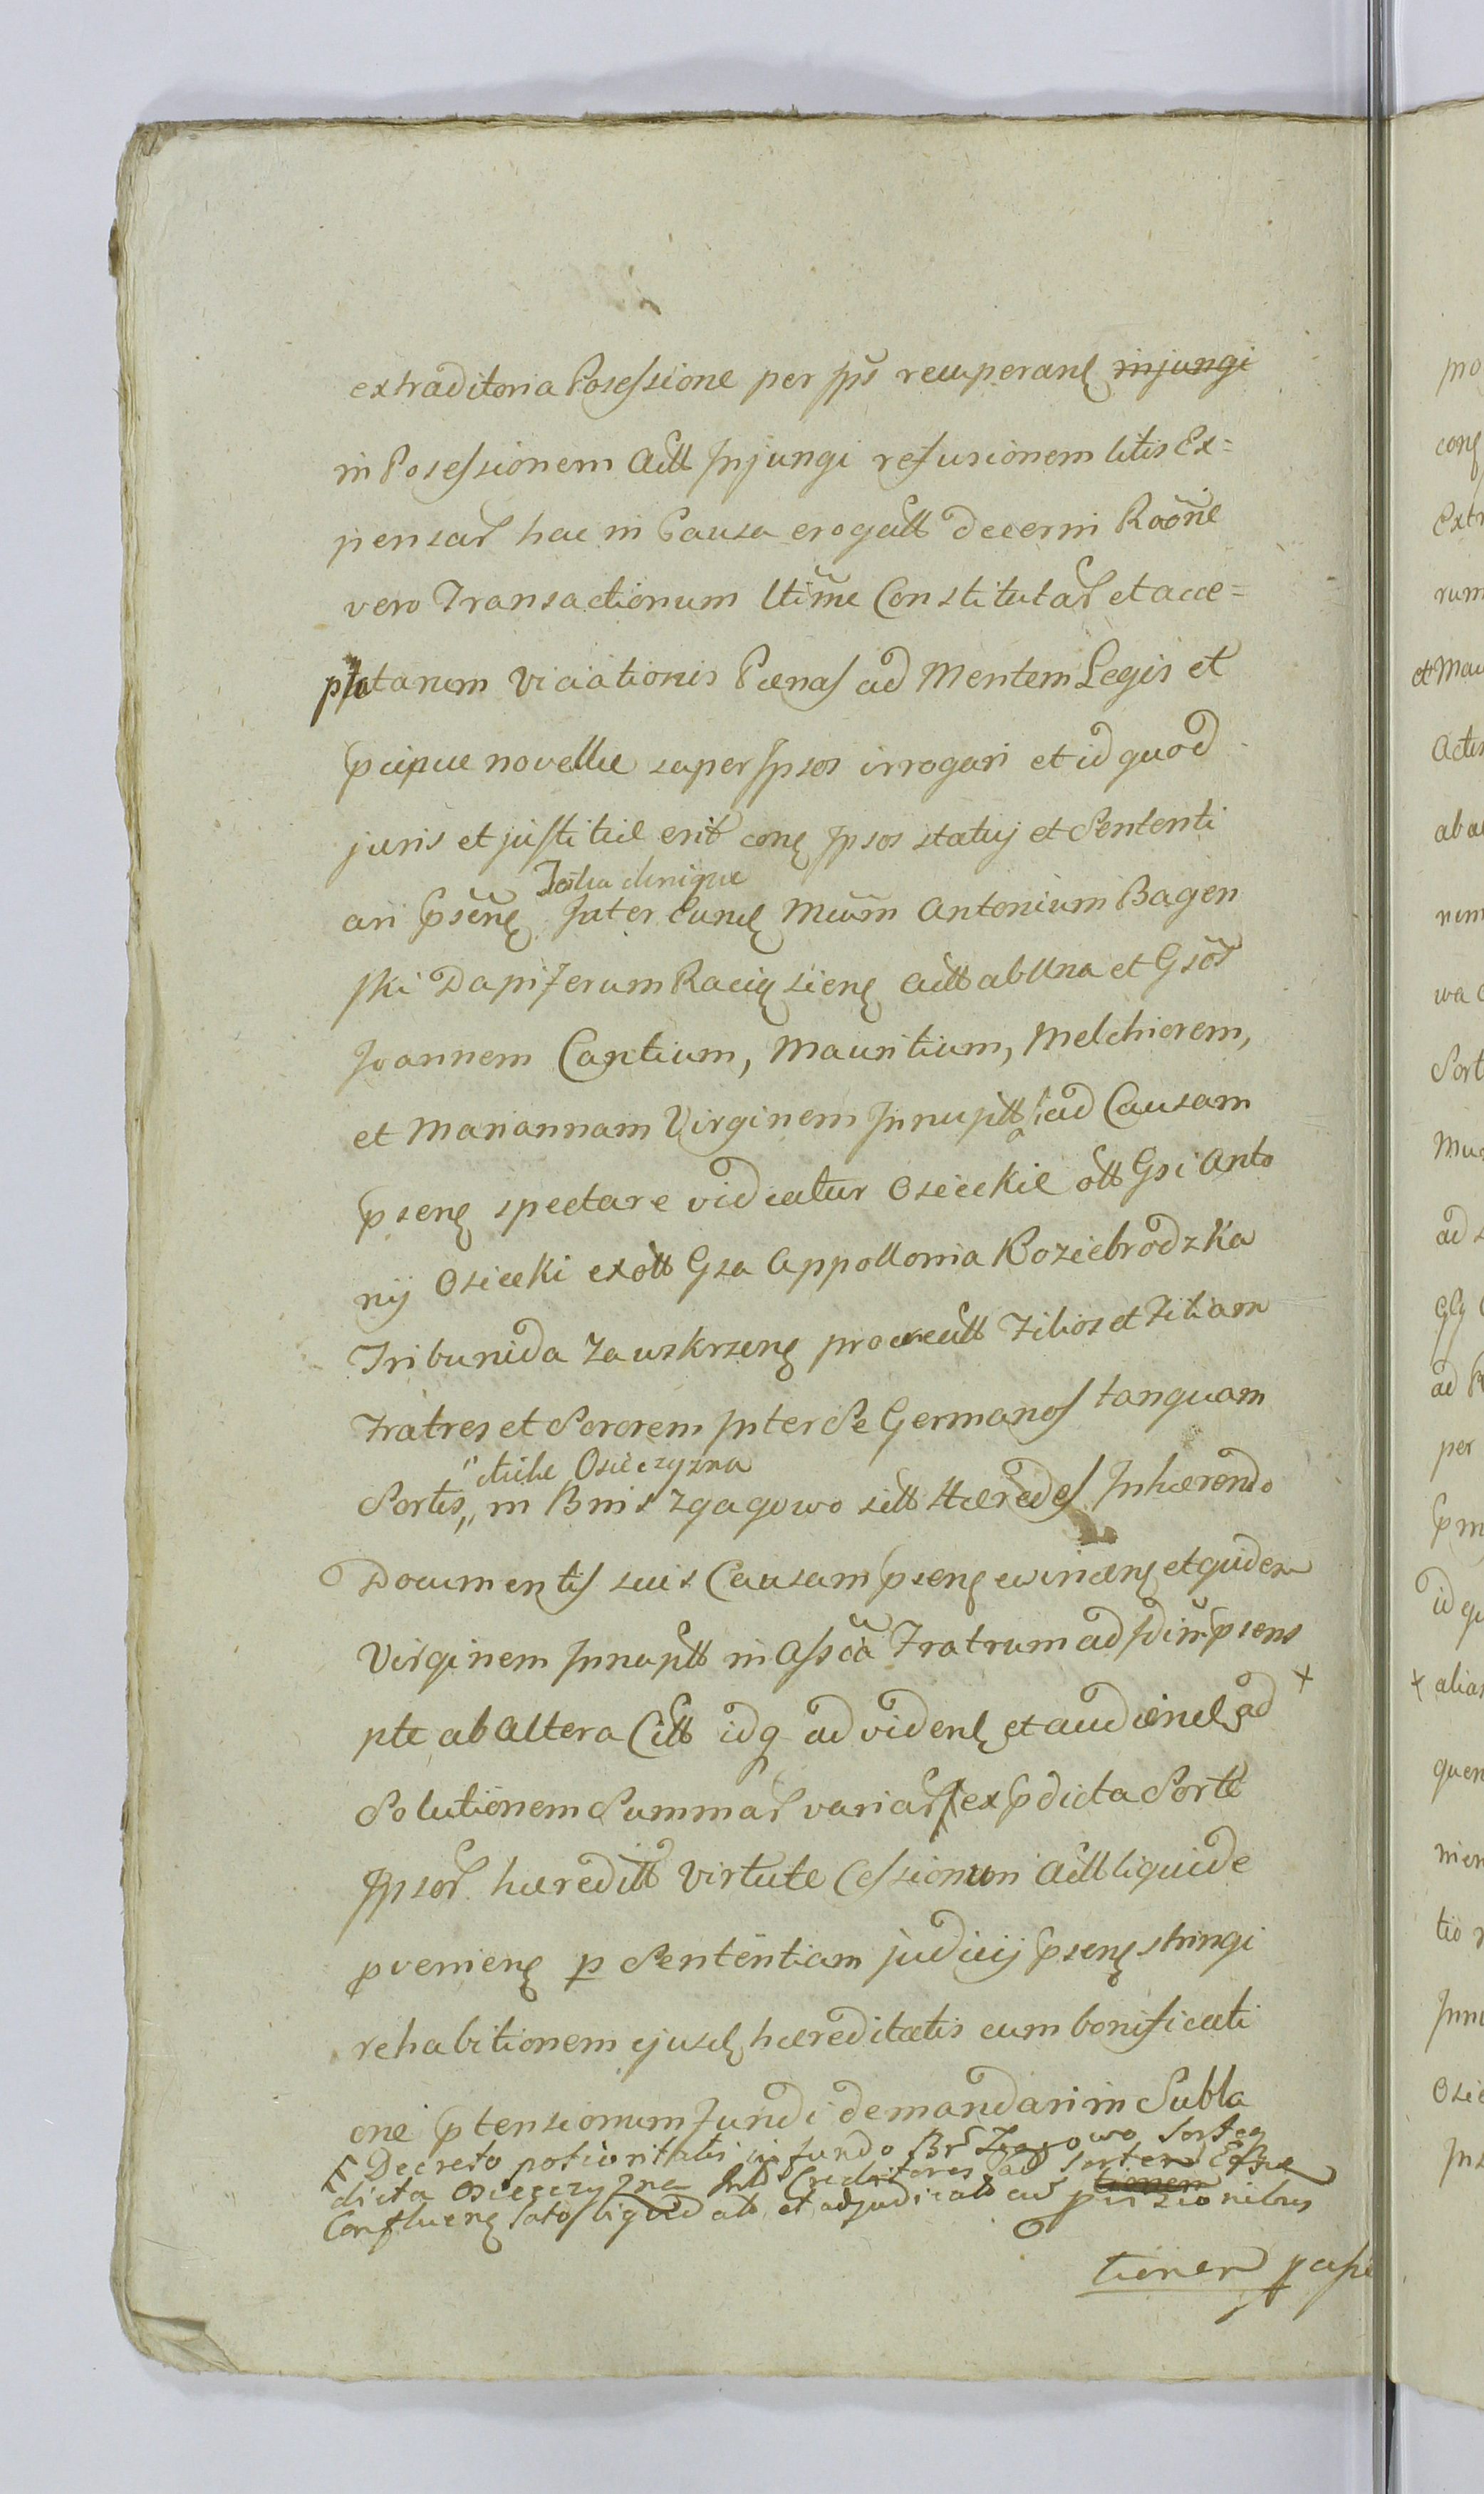 extraditoria Possessione per Ips̃ recuperanę injungi
in Possessionem Actt Injungi refusionem litis Ex=
pensar hac in Causa erogatt decerni Raõne
vero Transactionum ltĩme Constitutar et acce=
ptatarum viciationis Pænas ad Mentem Legis et
pcipue novellæ super Ipsos irrogari et id quod
juris et justitiæ erit conę Ipsos statuj et Sententi
denique
ari psẽnę Inter eundę Mũm Antonium Bagen
ski Dapiferum Raciązsieng Actt ab Una et Gsõs
Joannem Cantium, Mauritium, Melchiorem,
et Mariannam Virginem Innuptt ad Causam
psenę spectare videatur Osieckie ott Gsi Anto
nij Osiecki ex ott Gsa Appollonia Koziebrodzka
Tribunida Zawskrzenę procreatt Filios et Filiam
Fratres et Sororem Inter Se Germanos tanquam
dictæ Osieczyzna
Sortis,, in Bnis Zgagowo sitt Hæredes Inhærendo
Documentis suis Causam psenę evincenę et quidem
Virginem Innuptt in Assc̃ia Fratrum ad Idem psens
pte ab Altera Citt idq ad videndę et audiendę ad +
Solutionem Summar variar ex pdicta Sorte
Ipsor hæreditt virtute Cessionum Actt liquide
pvenienę p Sententiam judicij psenę stringi
rehabitionem ejusdę hæreditatis cum bonificati
one ptensionum fundi demandari in Subla
Decreto potioritatis in fundo Br Zgagowo Sorteq
dicta Osieczyzna Creditores ad Sortem
Confluenę satos liquidatt et adjudicatt cu pvisionibus
tionem
tionem